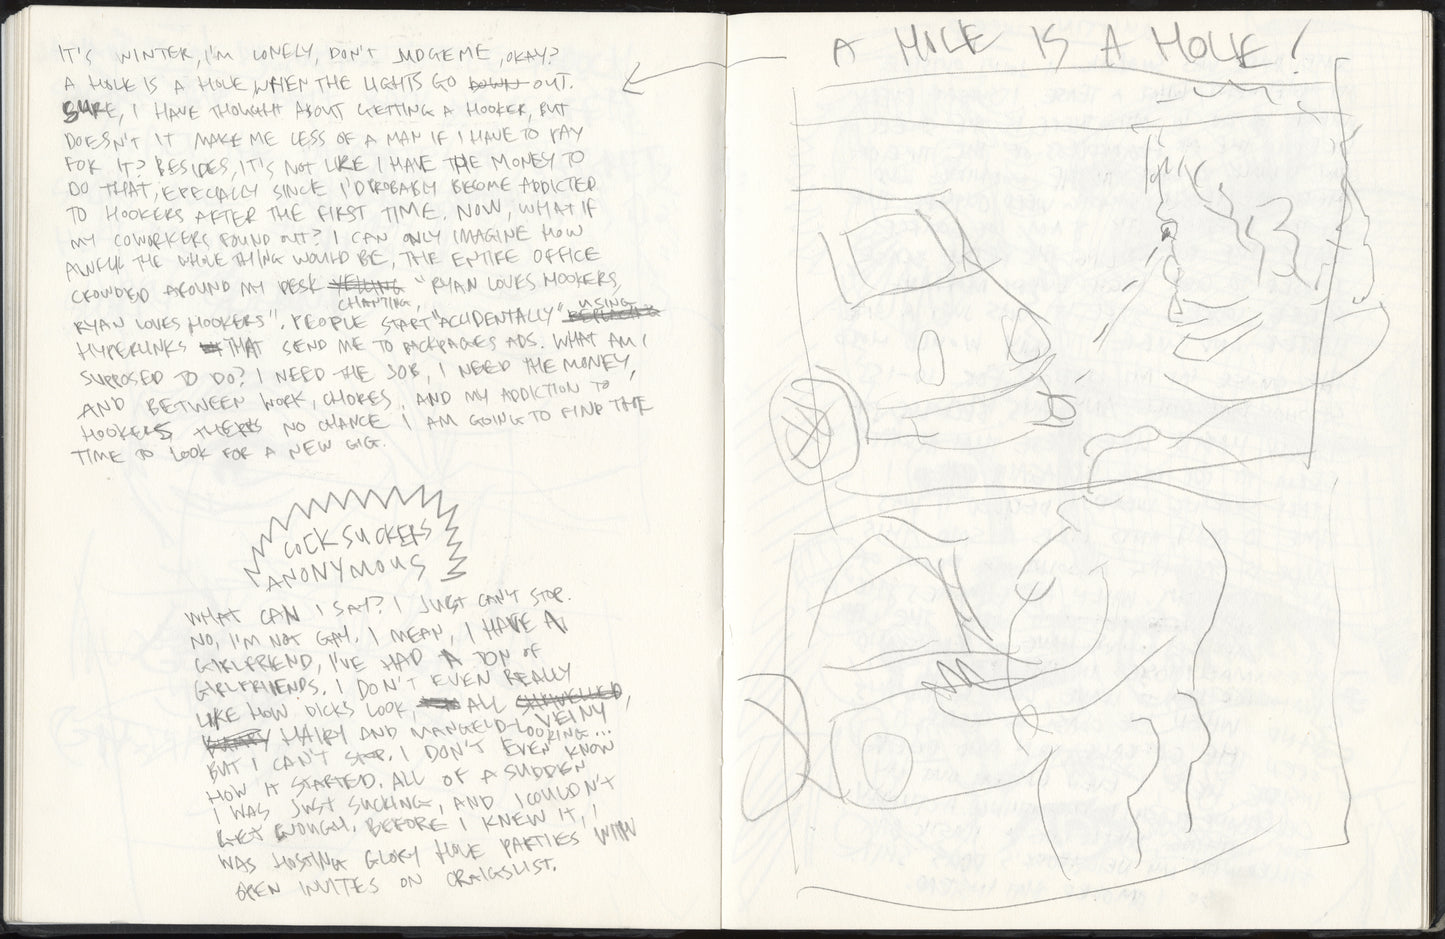 IT'S WINTER, I'M LONELY, DON'T JUDGE ME, OKAY?
A HOLE IS A HOLE WHEN THE LIGHTS GO DOWN OUT.
SURE, I HAVE THOUGHT ABOUT GETTING A HOOKER, BUT
DOESN'T IT MAKE ME LESS OF A MAN IF I HAVE TO PAY
FOR IT? BESIDES, IT'S NOT LIKE I HAVE THE MONEY TO
DO THAT, EPECIALLY SINCE I'D PROBABLY BECOME ADDICTED
TO HOOKERS AFTER THE FIRST TIME. NOW, WHAT IF
MY COWORKERS FOUND OUT? I CAN ONLY IMAGINE HOW
AWFUL THE WHOLE THING WOULD BE, THE ENTIRE OFFICE
CROWDED AROUND MY DESK YELLING "RYAN LOVES HOOKERS,
CHANTING,
RYAN LOVES HOOKERS". PEOPLE START "ACCIDENTALLY" USING
HYPERLINKS THAT SEND ME TO BACKPAGES ADS. WHAT AM I
SUPPOSED TO DO? I NEED THE JOB, I NEED THE MONEY,
AND BETWEEN WORK, CHORES, AND MY ADDICTION TO
HOOKERS THERES NO CHANCE I AM GOING TO FIND THE
TIME TO LOOK FOR A NEW GIG.
COCKSUCKERS
ANONYMOUS
WHAT CAN I SAY? I JUST CAN'T STOP.
NO, I'M NOT GAY. I MEAN, I HAVE A
GIRLFRIEND, I'VE HAD A TON OF
GIRLFRIENDS. I DON'T EVEN REALLY
LIKE HOW DICKS LOOK, ALL SHRIVELLED,
VEINY
HAIRY AND MANGELD-LOOKING...
BUT I CAN'T STOP. I DON'T EVEN KNOW
HOW IT STARTED. ALL OF A SUDDEN
I WAS JUST SUCKING, AND I COULDN'T
GET ENOUGH. BEFORE I KNEW IT, I
WAS HOSTING GLORY HOLE PARTIES WITH
OPEN INVITES ON CRAIGSLIST.
A HOLE IS A HOLE!